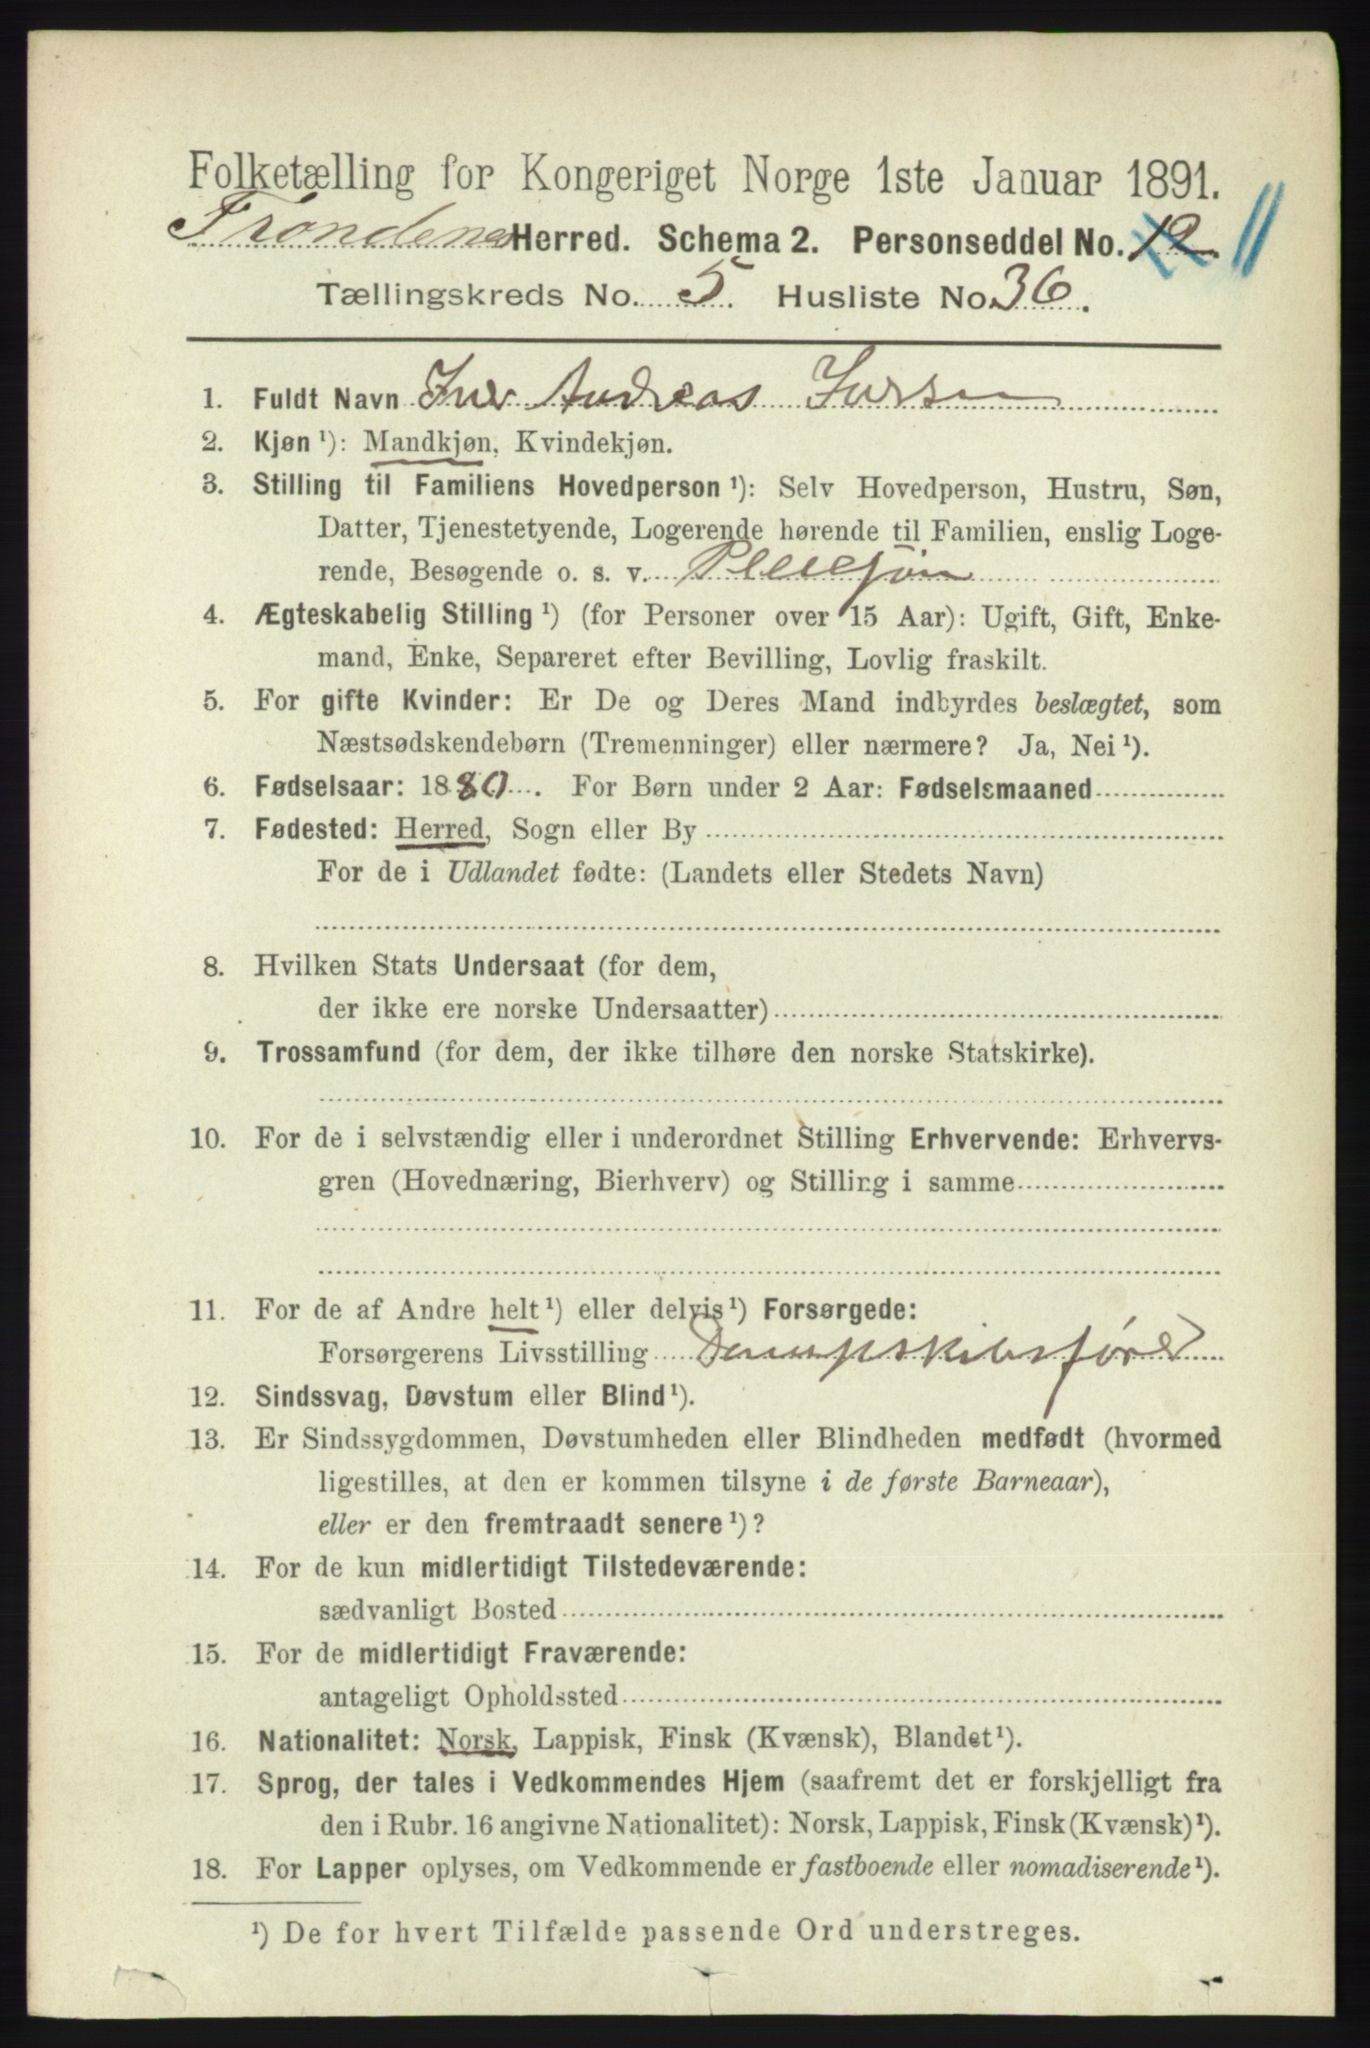 Folketælling for Kongeriget Norge 1ste Januar 1891.
Trondenes Herred. Schema 2. Personseddel No. 12 11
Tællingskreds No. 5. Husliste No. 36.
1. Fuldt Navn Iver Andreas Iversen
2. Kjøn ¹): Mandkjøn, Kvindekjøn.
3. Stilling til Familiens Hovedperson ¹): Selv Hovedperson, Hustru, Søn,
Datter, Tjenestetyende, Logerende hørende til Familien, enslig Loge-
rende, Besøgende o. s. v. Pleiesøn
4. Ægteskabelig Stilling ¹) (for Personer over 15 Aar): Ugift, Gift, Enke-
mand, Enke, Separeret efter Bevilling, Lovlig fraskilt.
5. For gifte Kvinder: Er De og Deres Mand indbyrdes beslægtet, som
Næstsødskendebørn (Tremenninger) eller nærmere? Ja, Nei ¹).
6. Fødselsaar: 1880. For Børn under 2 Aar: Fødselsmaaned
7. Fødested: Herred, Sogn eller By
For de i Udlandet fødte: (Landets eller Stedets Navn)
8. Hvilken Stats Undersaat (for dem,
der ikke ere norske Undersaatter)
9. Trossamfund (for dem, der ikke tilhøre den norske Statskirke).
10. For de i selvstændig eller i underordnet Stilling Erhvervende: Erhvervs-
gren (Hovednæring, Bierhverv) og Stilling i samme
11. For de af Andre helt ¹) eller delvis ¹) Forsørgede:
Forsørgerens Livsstilling Dampskibsfører
12. Sindssvag, Døvstum eller Blind ¹).
13. Er Sindssygdommen, Døvstumheden eller Blindheden medfødt (hvormed
ligestilles, at den er kommen tilsyne i de første Barneaar),
eller er den fremtraadt senere ¹)?
14. For de kun midlertidigt Tilstedeværende:
sædvanligt Bosted
15. For de midlertidigt Fraværende:
antageligt Opholdssted
16. Nationalitet: Norsk, Lappisk, Finsk (Kvænsk), Blandet ¹).
17. Sprog, der tales i Vedkommendes Hjem (saafremt det er forskjelligt fra
den i Rubr. 16 angivne Nationalitet): Norsk, Lappisk, Finsk (Kvænsk) ¹).
18. For Lapper oplyses, om Vedkommende er fastboende eller nomadiserende ¹).
¹) De for hvert Tilfælde passende Ord understreges.